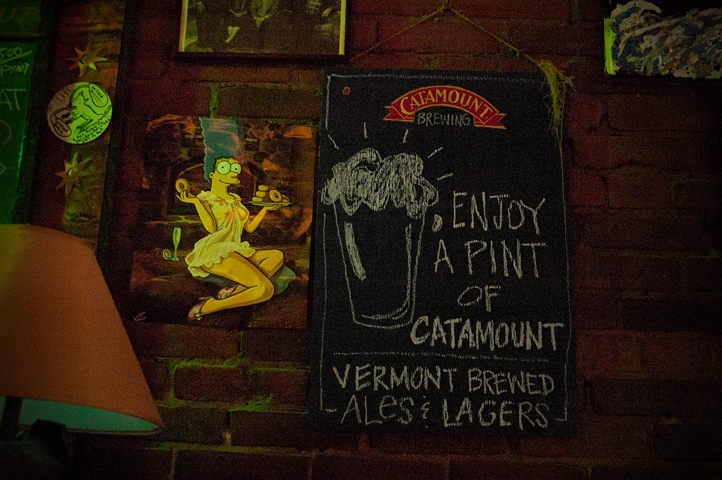 CATAMOUNT
BREWING
ENJOY
A PINT
OF
CATAMOUNT
VERMONT BREWED
ALES & LAGERS